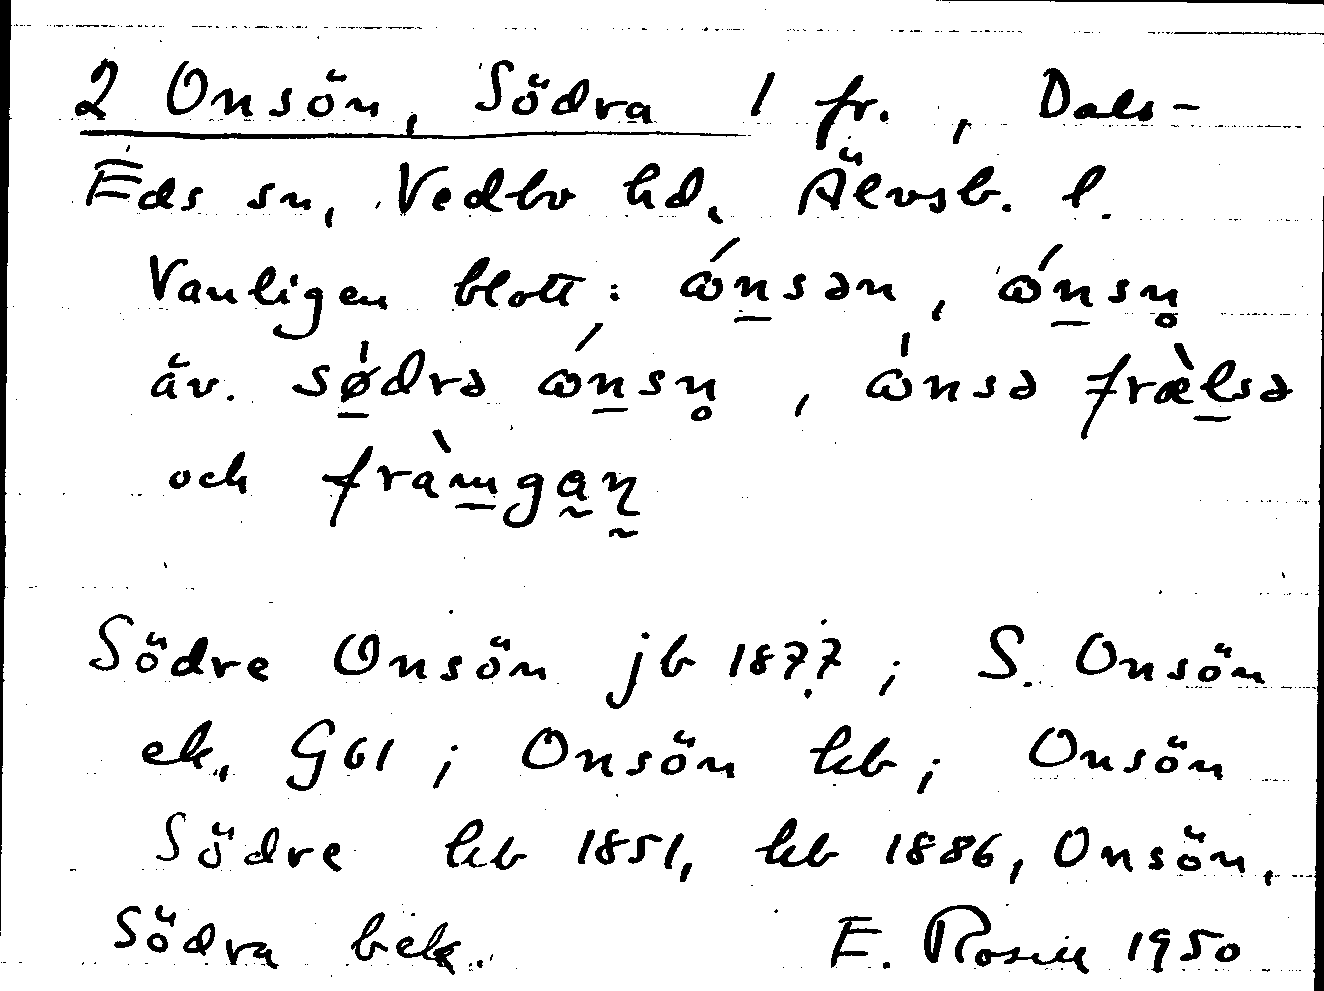 2 Onsön, Södra 1 fr., Dals-
Eds sn, Vedbo hd, Älvsb. l.
Vanligen blott: ώn̲sən, ώn̲sn̥
äv. sǿ̲drə ώn̲sn̥, ώnsə fræ̀l̲sə
och fràm̲ga̰ṉ̰
Södre Onsön jb 1877; S. Onsön
ek. G61; Onsön kb; Onsön
Södre kb 1851, kb 1886, Onsön,
Södra bek. E. Rosell 1950